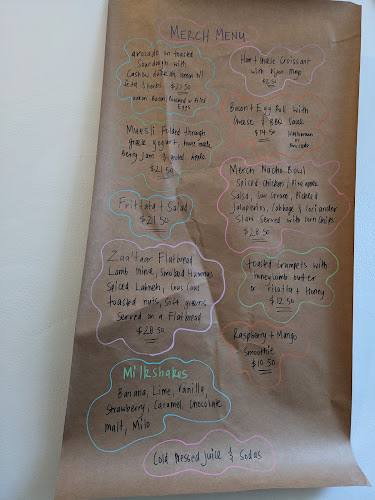 MERCH MENU
avocado on toasted
Sourdough with
Cashew dukkah, lemon oil
feta & herbs $23.50
Bacon Poached or Fried
Eggs
Muesli Folded through
greek yogurt, house made
Berry Jam & Apple
$21.50
Frittata + Salad
$21.50
Zaa'taar Flatbread
Lamb mince, Smoked Hummus
Spiced Labneh, Cous Cous
toasted nuts, soft greens
Served on a Flatbread
$28.50
Milkshakes
Banana, Lime, Vanilla,
Strawberry, Caramel, Chocolate
malt, Milo
Ham + Cheese Croissant
with Dijon Mayo
Bacon + Egg Roll with
Cheese & BBQ Sauce
$14.50
Merch Nacho Bowl
Spiced Chicken / Pineapple
Salsa, Sour Cream, Pickled
Jalapenos, Cabbage & Coriander
Slaw Served with Corn Chips
$28.50
toasted Crumpets with
honeycomb butter
or Ricotta + Honey
$12.50
Raspberry + Mango
Smoothie
$10.50
Cold Pressed Juice & Sodas